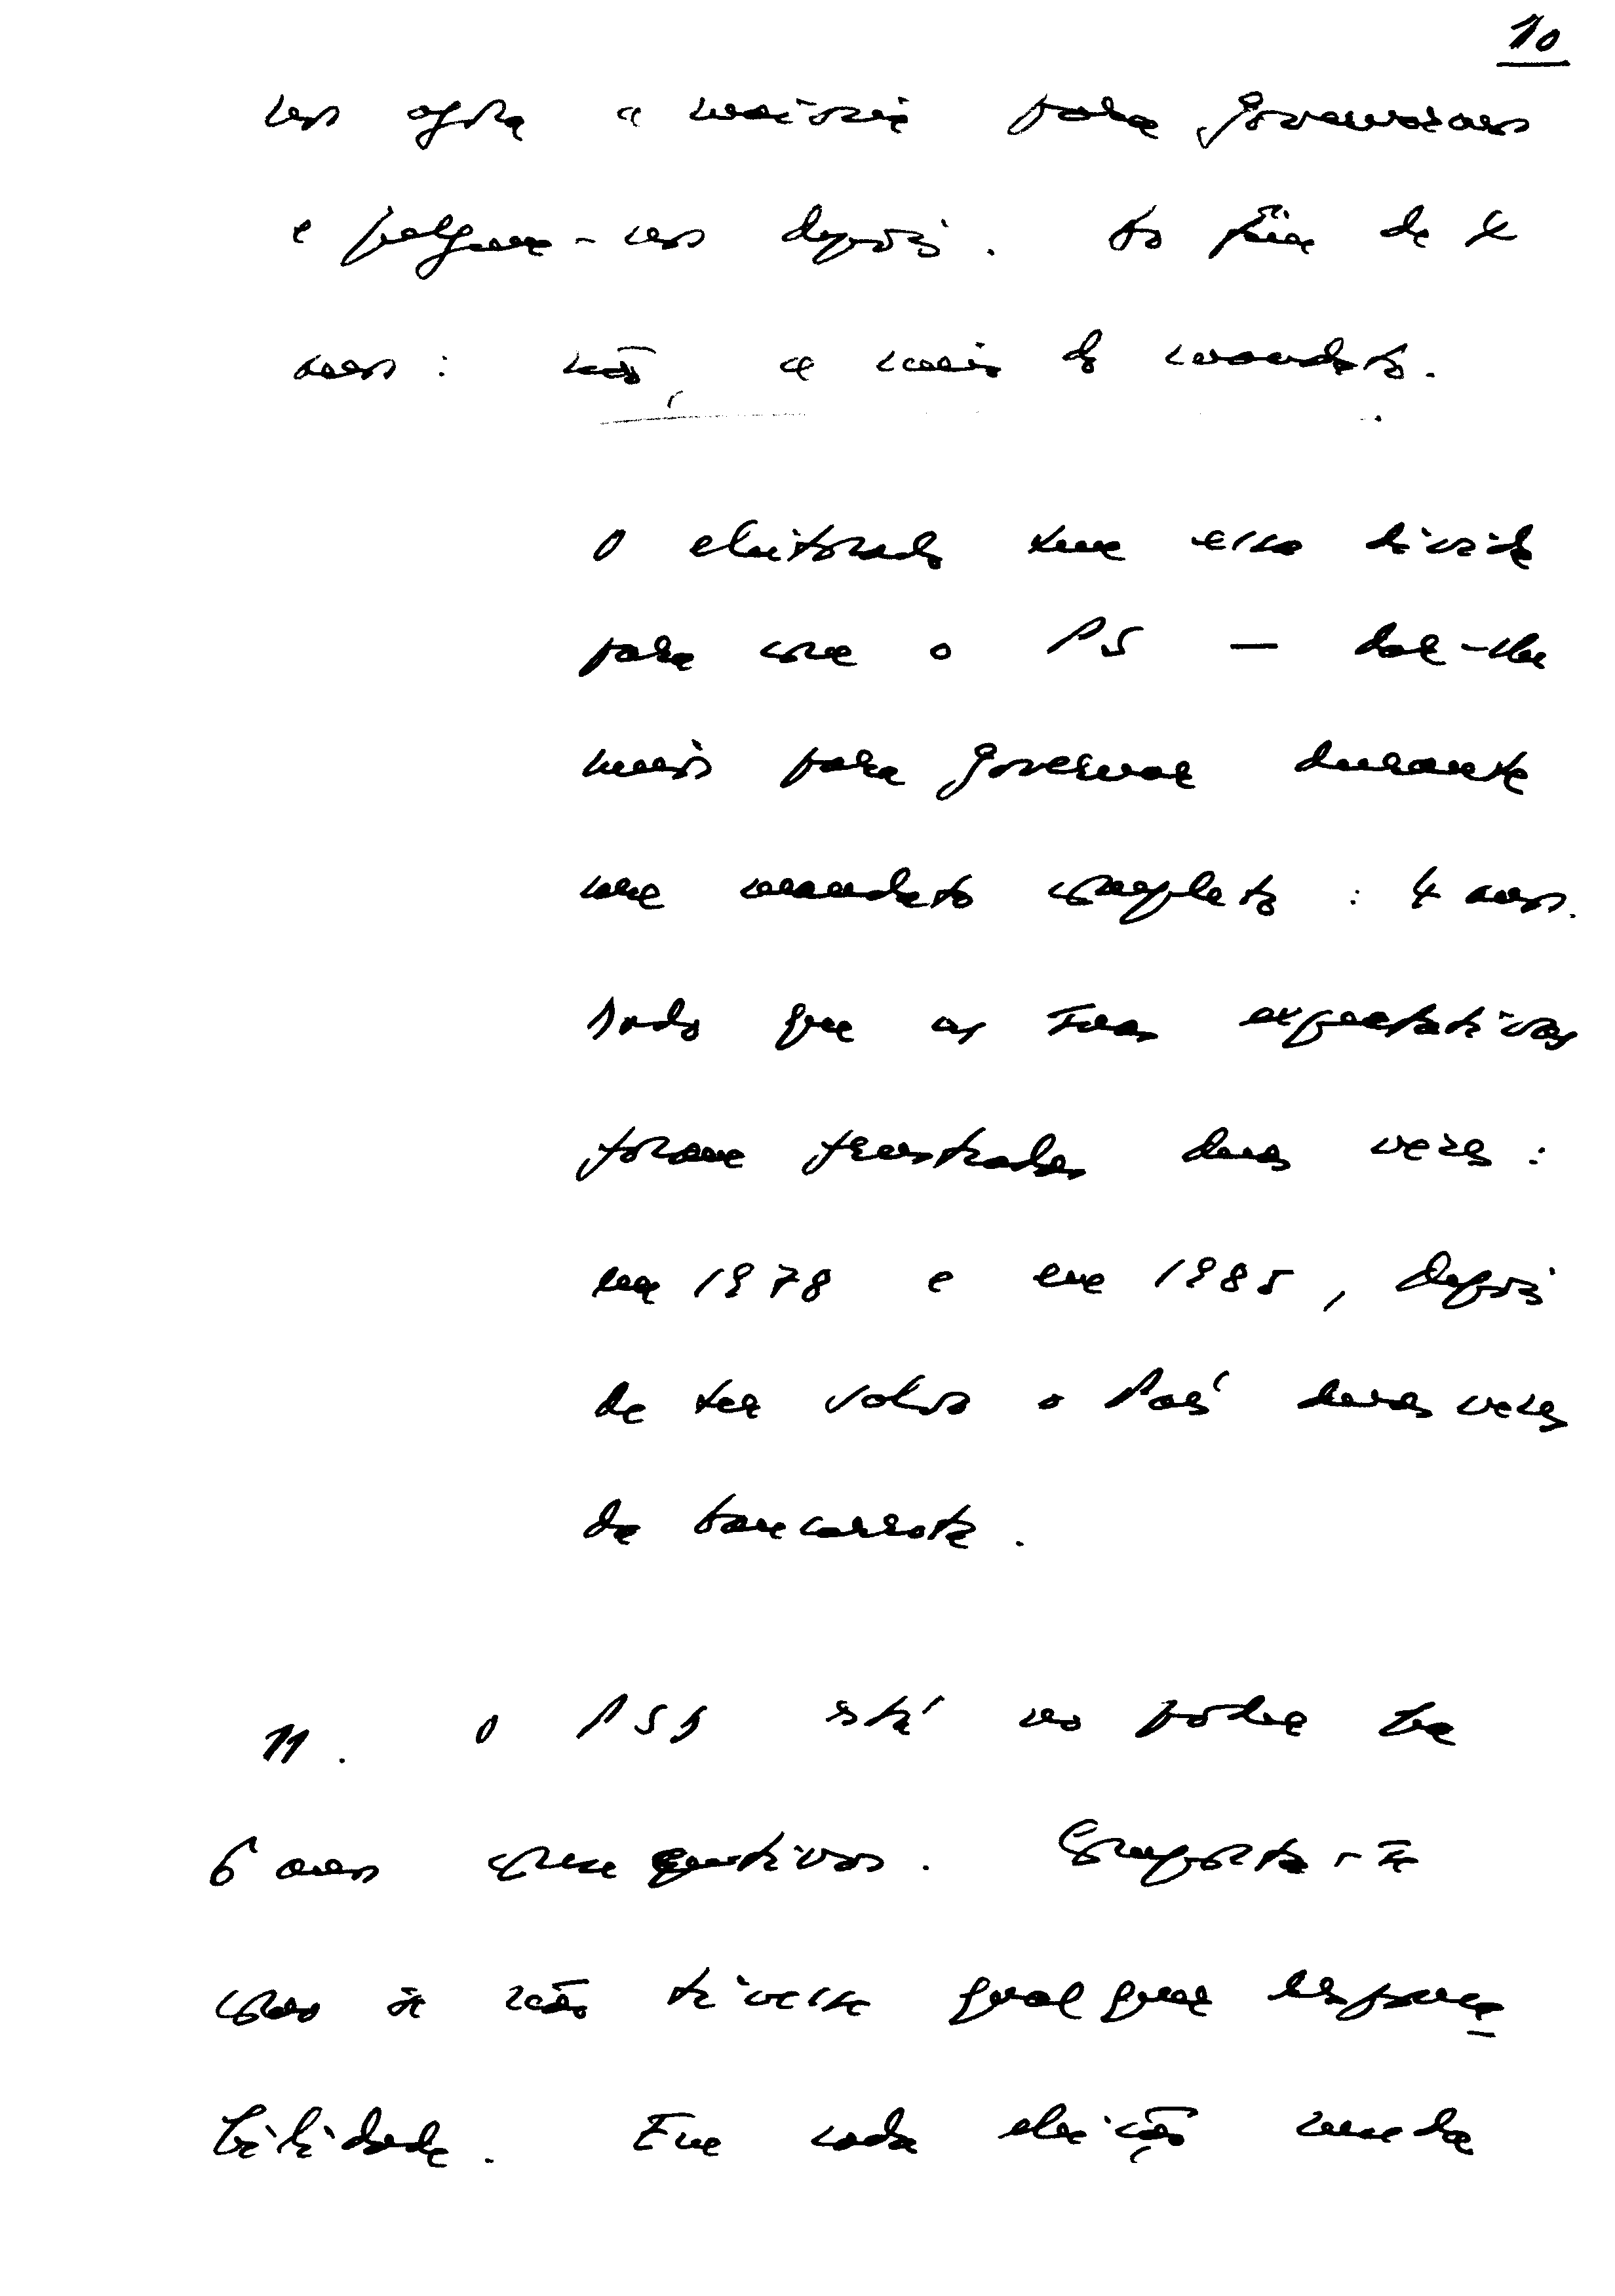 10
nos agora a maioria para governarmos
e julguem-nos depois. Ao fim de 4
anos: não, a meio do mandato.
O eleitorado tem essa dívida
para com o PS — dar-lhe
meios para governar durante
um mandato completo: 4 anos.
Dado que as suas expectativas
foram frustradas duas vezes:
em 1978 e em 1985, depois
de ter salvo o País duas vezes
da bancarrota.
11. O PSD está no poder há
6 anos consecutivos. Comporta-se
como se não tivesse qualquer respons
bilidade. Em cada eleição muda